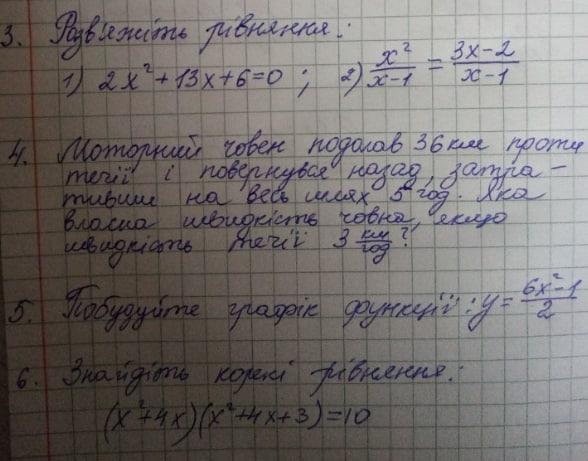 3. Розв'яжіть рівняння:
1) 2x²+13x+6=0 ; 2) x²/(x-1) = (3x-2)/(x-1)
4. Моторний човен подолав 36 км проти
течії і повернувся назад, затра-
тивши на весь шлях 5 год. Яка
власна швидкість човна, якщо
швидкість течії 3 км/год?
5. Побудуйте графік функції: y = (6x²-1)/2
6. Знайдіть корені рівняння:
(x²+4x)(x²+4x+3)=10